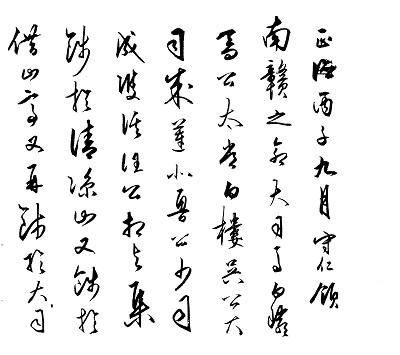 正德丙子九月守仁領
南贛之命大司馬白巖
喬公太常白樓吳公大
司成蓮北魯公少司
成雙溪汪公相與集
餞於清涼山又餞於
借山亭又再餞於大司